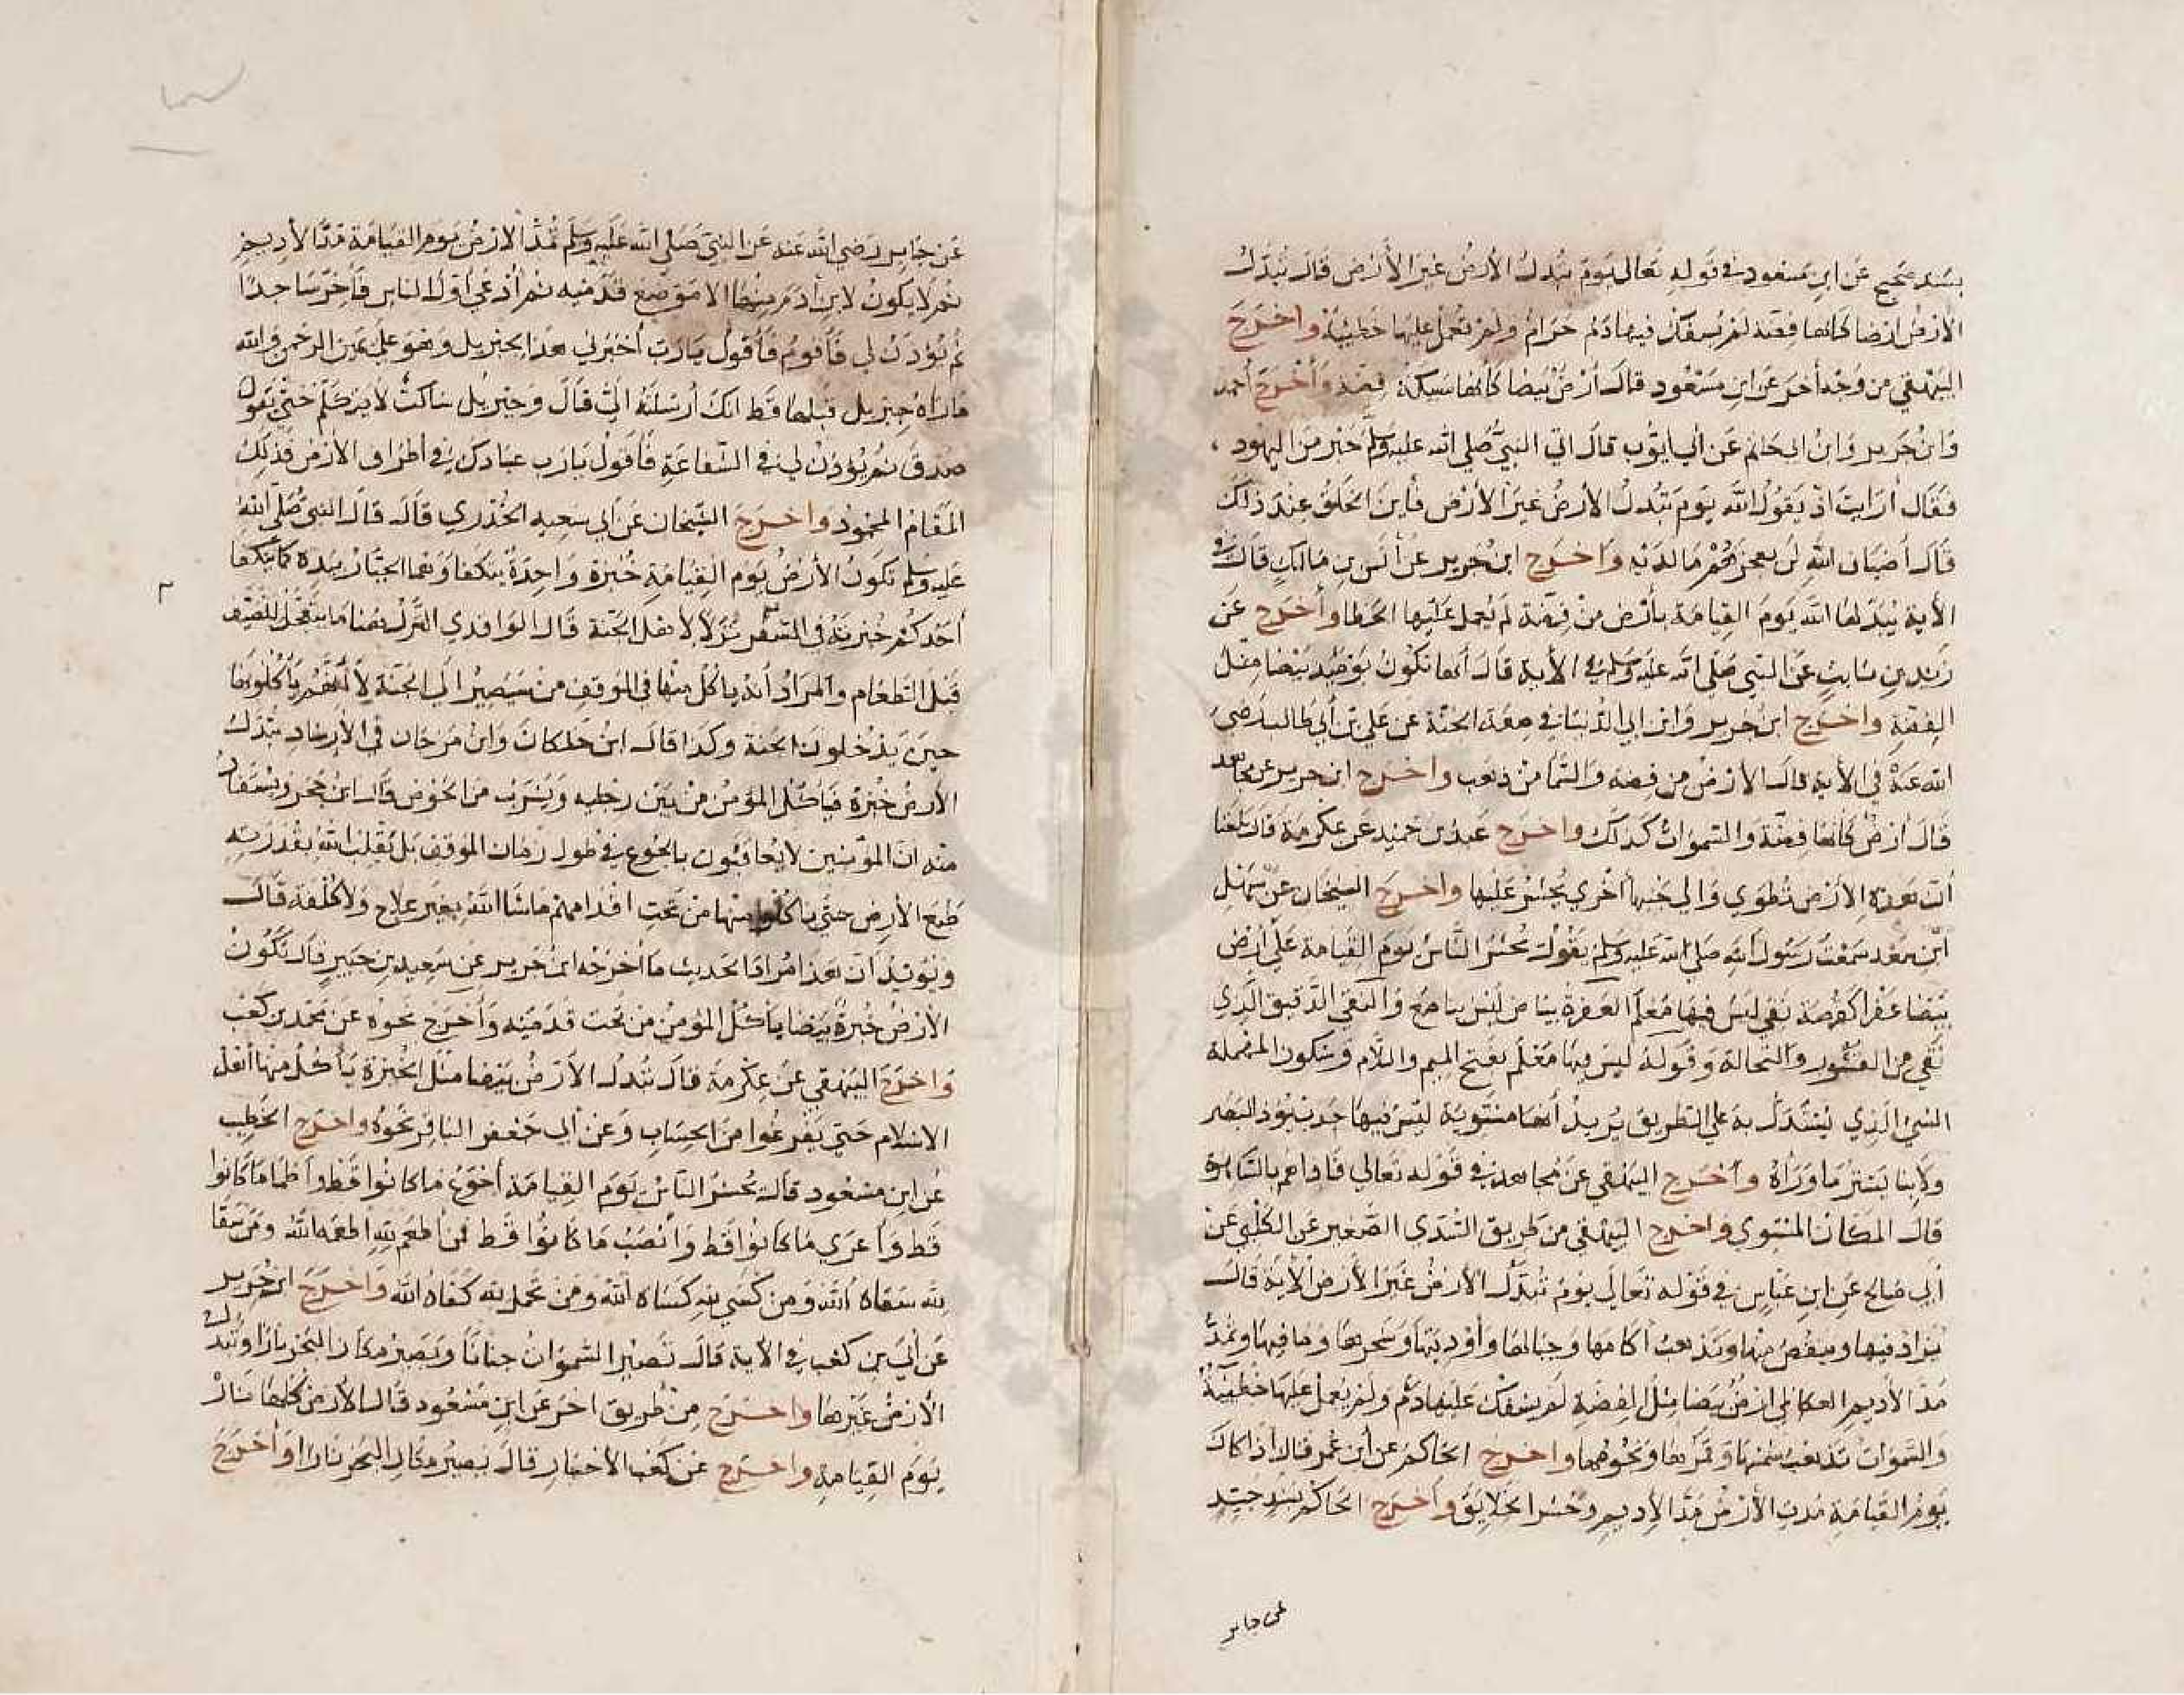 بسند صحيح عن ابن مسعود في قوله تعالى يوم تبدل الأرض غير الأرض قال تبدل
الأرض ارضا كانها فضة لم يسفك فيها دم حرام ولم تعمل عليها خطيئة واخرج
البيهقي من وجه أخر عن ابن مسعود قال أرض بيضا كانها سبيكة فضة وأخرج أحمد
وابن جرير وابن ابي حاتم عن أبي ايوب قال اتي النبي صلي الله عليه وسلم حبر من اليهود
فقال أرايت اذ يقول الله يوم تبدل الارض غير الأرض فأين الخلق عند ذلك
قال أضياف الله لن يعجزهم ما لديه واخرج ابن جرير عن أنس بن مالك قال في
الأية يبدلها الله يوم القيامة بأرض من فضة لم يعمل عليها الخطا وأخرج عن
زيد بن ثابت عن النبي صلي الله عليه وسلم في الأية قال انها تكون يومئذ بيضا مثل
الفضة واخرج ابن جرير وابن ابي الدنيا في صفة الجنة عن علي بن أبي طالب رضي
الله عنه في الأية قال الأرض من فضة والسما من ذهب واخرج ابن جرير عن مجاهد
قال أرض كانها فضة والسموات كذلك واخرج عبد بن حميد عن عكرمة قال بلغنا
أن هذه الأرض تطوي والي جنبها أخري يحشر عليها واخرج الشيخان عن سهل
ابن سعد سمعت رسول الله صلي الله عليه وسلم يقول يحشر الناس يوم القيامة علي أرض
بيضا عفرا كقرصة نقي ليس فيها معلم العفرة بياض ليس بناصع والنقي الدقيق الذي
نقي من القشور والنخالة وقوله ليس بها معلم بفتح الميم واللام وسكون المهملة
الشي الذي يستدل به علي الطريق يريد أنها مستوية ليس فيها حدب يرد البصر
ولا بنا يستر ما وراه وأخرج البيهقي عن مجاهد في قوله تعالي فاذا هم بالساهرة
قال المكان المستوي واخرج البيهقي من طريق السدي الصغير عن الكلبي عن
أبي صالح عن ابن عباس في قوله تعالى يوم تبدل الأرض غير الأرض الأية قال
يزاد فيها وينقص منها وتذهب أكامها وجبالها وأوديتها وشجرها وما فيها وتمد
مد الأديم العكاظي ارض بيضا مثل الفضة لم يسفك عليها دم ولم يعمل عليها خطيئة
والسموات تذهب شمسها وقمرها ونجومها واخرج الحاكم عن ابن عمر قال اذا كان
يوم القيامة مدت الأرض مد الأديم وحشر الخلايق وأخرج الحاكم بسند جيد
عن جابر
عن جابر رضي الله عنه عن النبي صلى الله عليه وسلم تمد الارض يوم القيامة مد الأديم
ثم لا يكون لابن أدم منها الا موضع قدميه ثم أدعي أول الناس فأخر ساجدا
ثم يؤذن لي فأقوم فأقول يارب أخبرني هذا لجبريل وهو على يمين الرحمن والله
ما راه جبريل قبلها قط انك أرسلته الي قال وجبريل ساكت لا يتكلم حتي يقول
صدق ثم يؤذن لي في الشفاعة فأقول يارب عبادك في أطراف الأرض فذلك
المقام المحمود وأخرج الشيخان عن أبي سعيد الخدري قال قال النبي صلي الله
عليه وسلم تكون الأرض يوم القيامة خبزة واحدة يتكفاها الجبار بيده كما يتكفا
أحدكم خبزته في السفر نزلا لأهل الجنة قال الداودي النزل هنا ما يتعجل للضيف
قبل الطعام والمراد أنه ياكل منها في الموقف من سيصير الي الجنة لا أنهم يأكلونها
حين يدخلون الجنة وكذا قال ابن خلكان وابن مرجان في الأرشاد تبدل
الأرض خبزة فيأكل المؤمن من بين رجليه ويشرب من الحوض قال ابن حجر ويستفاد
منه ان المؤمنين لا يعاقبون بالجوع في طول زمان الموقف بل يقلب الله بقدرته
طبع الأرض حتي ياكلوا منها من تحت اقدامهم ماشا الله بغير علاج ولا كلفة قال
ويؤيد أن هذا مراد الحديث ما أخرجه ابن جرير عن سعيد بن جبير قال تكون
الأرض خبزة بيضا يأكل المؤمن من تحت قدميه وأخرج نحوه عن محمد بن كعب
واخرج البيهقي عن عكرمة قال تبدل الأرض بيضا مثل الخبزة يأكل منها أهل
الاسلام حتي يفرغوا من الحساب وعن أبي جعفر الباقر نحوه واخرج الخطيب
عن ابن مسعود قال يحشر الناس يوم القيامة أجوع ما كانوا قط وأظما ما كانوا
قط وأعري ما كانوا قط وأنصب ما كانوا قط فمن أطعم لله أطعمه الله ومن سقا
لله سقاه الله ومن كسي لله كساه الله ومن عمل لله كفاه الله واخرج ابن جرير
عن أبي بن كعب في الأية قال تصير السموات جنانا وتصير مكان البحر نارا وتبدل
الأرض غيرها واخرج من طريق اخر عن ابن مسعود قال الأرض كلها نار
يوم القيامة واخرج عن كعب الأحبار قال يصير مكان البحر نارا وأخرج